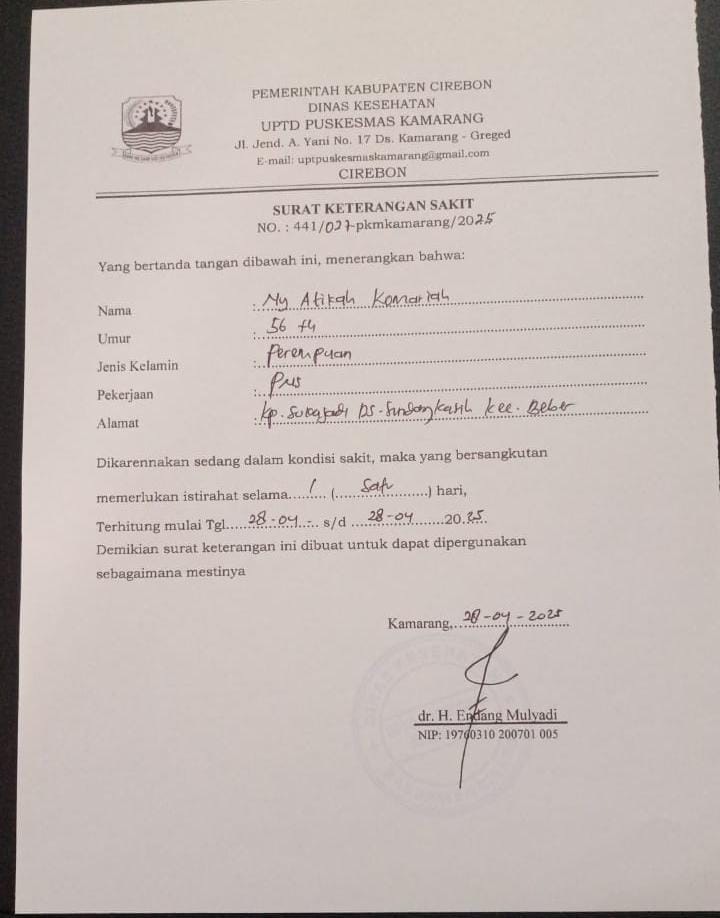 PEMERINTAH KABUPATEN CIREBON
DINAS KESEHATAN
UPTD PUSKESMAS KAMARANG
Jl. Jend. A. Yani No. 17 Ds. Kamarang - Greged
E-mail: uptpuskesmaskamarang@gmail.com
CIREBON
SURAT KETERANGAN SAKIT
NO. : 441/027-pkmkamarang/2025
Yang bertanda tangan dibawah ini, menerangkan bahwa:
Nama : Ny Atikah Komariah
Umur : 56 th
Jenis Kelamin : Perempuan
Pekerjaan : PNS
Alamat : Kp. Sukajadi DS. Sindangkasih kec. Beber
Dikarennakan sedang dalam kondisi sakit, maka yang bersangkutan
memerlukan istirahat selama...1... (...Satu...) hari,
Terhitung mulai Tgl...28-04-... s/d ...28-04...2025.
Demikian surat keterangan ini dibuat untuk dapat dipergunakan
sebagaimana mestinya
Kamarang, 28-04-2025
dr. H. Endang Mulyadi
NIP: 19760310 200701 005